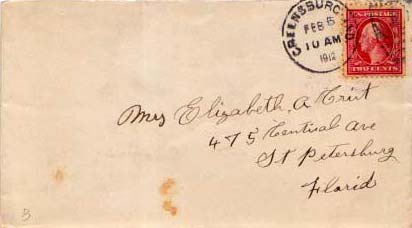 GREENSBURG
FEB 5
10 AM
1912
U.S. POSTAGE
TWO CENTS
Mrs Elizabeth A Trist
475 Central Ave
St Petersburg
Florid
B